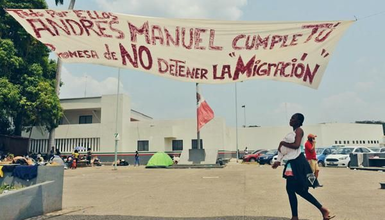 Todo Por ELLOS
ANDRES MANUEL CUMPLE TÚ
Promesa de NO DETENER LA "MIGRACIÓN"